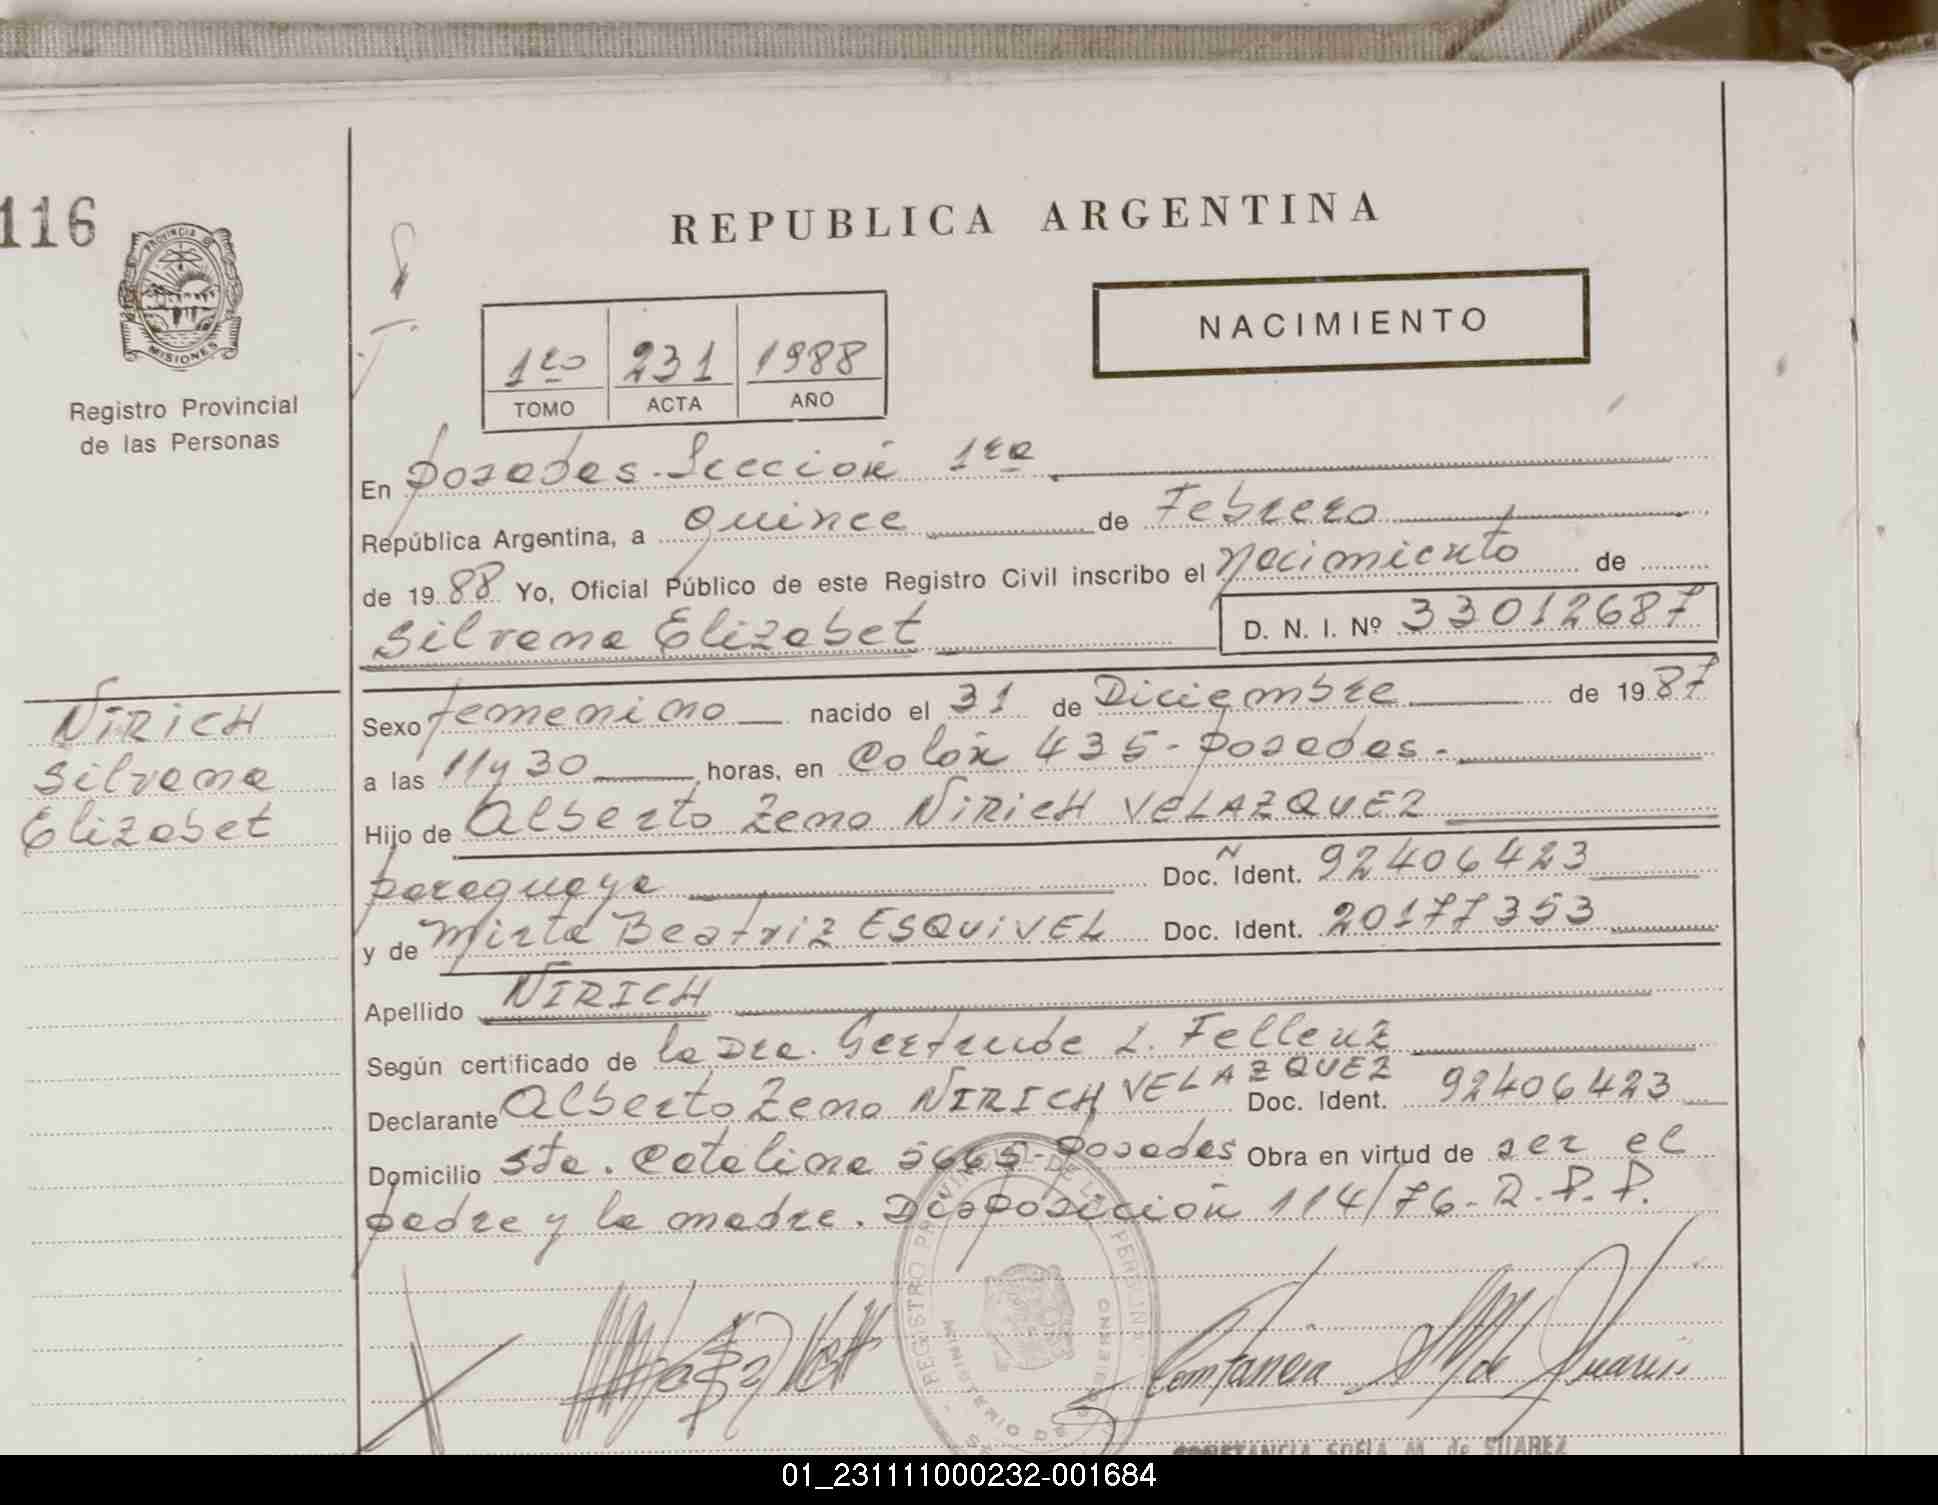 116
PROVINCIA D
MISIONES
Registro Provincial
de las Personas
REPUBLICA ARGENTINA
NACIMIENTO
1ro 231 1988
TOMO ACTA AÑO
En Posadas-Sección 1ra
República Argentina, a quince de Febrero
de 1988 Yo, Oficial Público de este Registro Civil inscribo el nacimiento de
Silvana Elizabet D. N. I. Nº 33012687
NIRICH
Silvana
Elizabet
Sexo femenino nacido el 31 de Diciembre de 1987
a las 11 y 30 horas, en Colón 435-Posadas.
Hijo de Alberto Zeno NIRICH VELAZQUEZ
paraguaya Doc. Ident. 92406423
y de Mirta Beatriz ESQUIVEL Doc. Ident. 20177353
Apellido NIRICH
Según certificado de la Dra. Gertrude L. Fellenz
Declarante Alberto Zeno NIRICH VELAZQUEZ Doc. Ident. 92406423
Domicilio Sta. Catalina 5665-Posadas Obra en virtud de ser el
padre y la madre. Disposición 114/76-R.P.P.
REGISTRO PROVINCIAL DE LAS PERSONAS
MINISTERIO DE GOBIERNO
CONSTANCIA SOFIA M. de SUAREZ
01_231111000232-001684